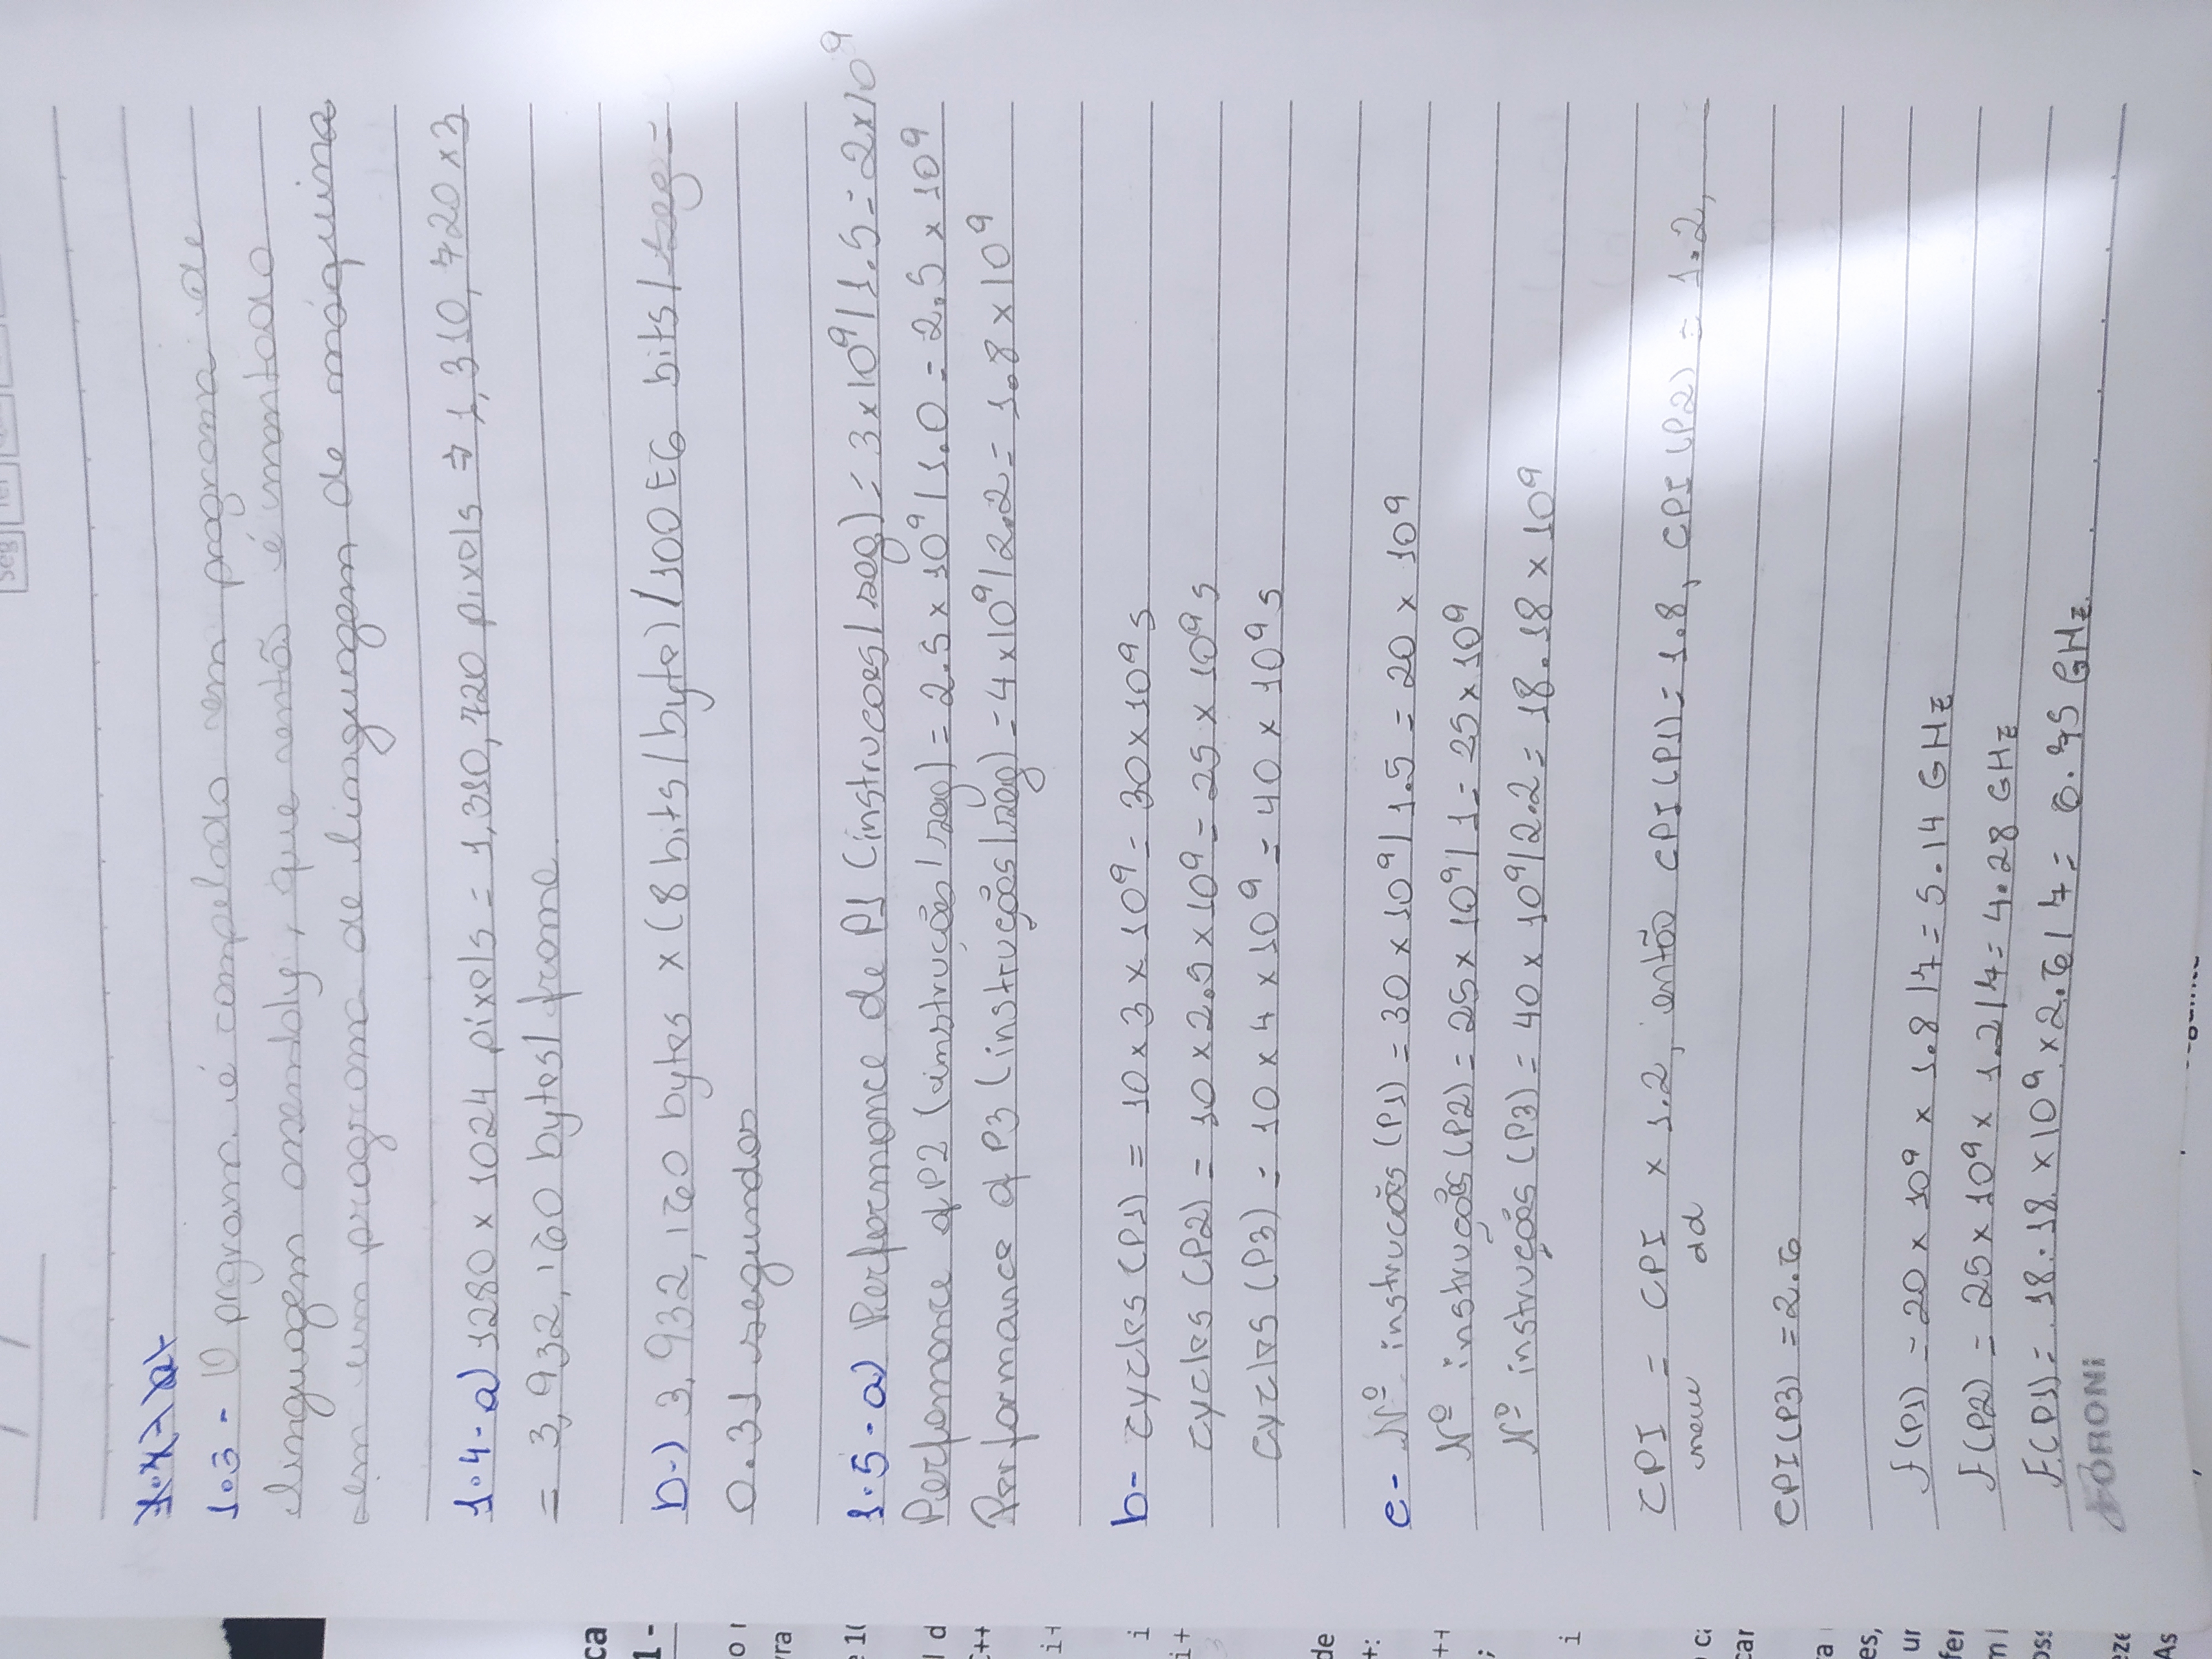 Seg Ter
1.3 - O prgrama é compelado em programa de
linguagem assembly, que então é montado
em um programa de linguagem de máquina
1.4-a) 1280 x 1024 pixels = 1,310,720 pixels ⇒ 1,310,720 x 3
= 3,932,160 bytes/frame.
b-) 3,932,160 bytes x (8 bits/byte) /100 E6 bits/seg =
0.31 segundos
1.5-a) Performance de P1 (instrucoes/seg) = 3x10⁹/1.5 = 2x10⁹
Perfomance of P2 (instruções/seg) = 2.5 x 10⁹/1.0 = 2.5 x 10⁹
Performance of P3 (instruções/seg) = 4x10⁹/2.2 = 1.8 x 10⁹
b- cycles (P1) = 10 x 3 x 10⁹ = 30 x 10⁹ s
cycles (P2) = 10 x 2.5 x 10⁹ = 25 x 10⁹ s
cycles (P3) = 10 x 4 x 10⁹ = 40 x 10⁹ s
c- Nº instrucões (P1) = 30 x 10⁹/1.5 = 20 x 10⁹
Nº instruções (P2) = 25 x 10⁹/1 = 25 x 10⁹
Nº instruções (P3) = 40 x 10⁹/2.2 = 18.18 x 10⁹
CPI = CPI x 1.2, então CPI(P1) = 1.8, CPI (P2) = 1.2,
new old
CPI(P3) = 2.6
f(P1) = 20 x 10⁹ x 1.8/7 = 5.14 GHz
f(P2) = 25 x 10⁹ x 1.2/7 = 4.28 GHz
F(P1) = 18.18 x 10⁹ x 2.6/7 = 6.75 GHz
FORONI